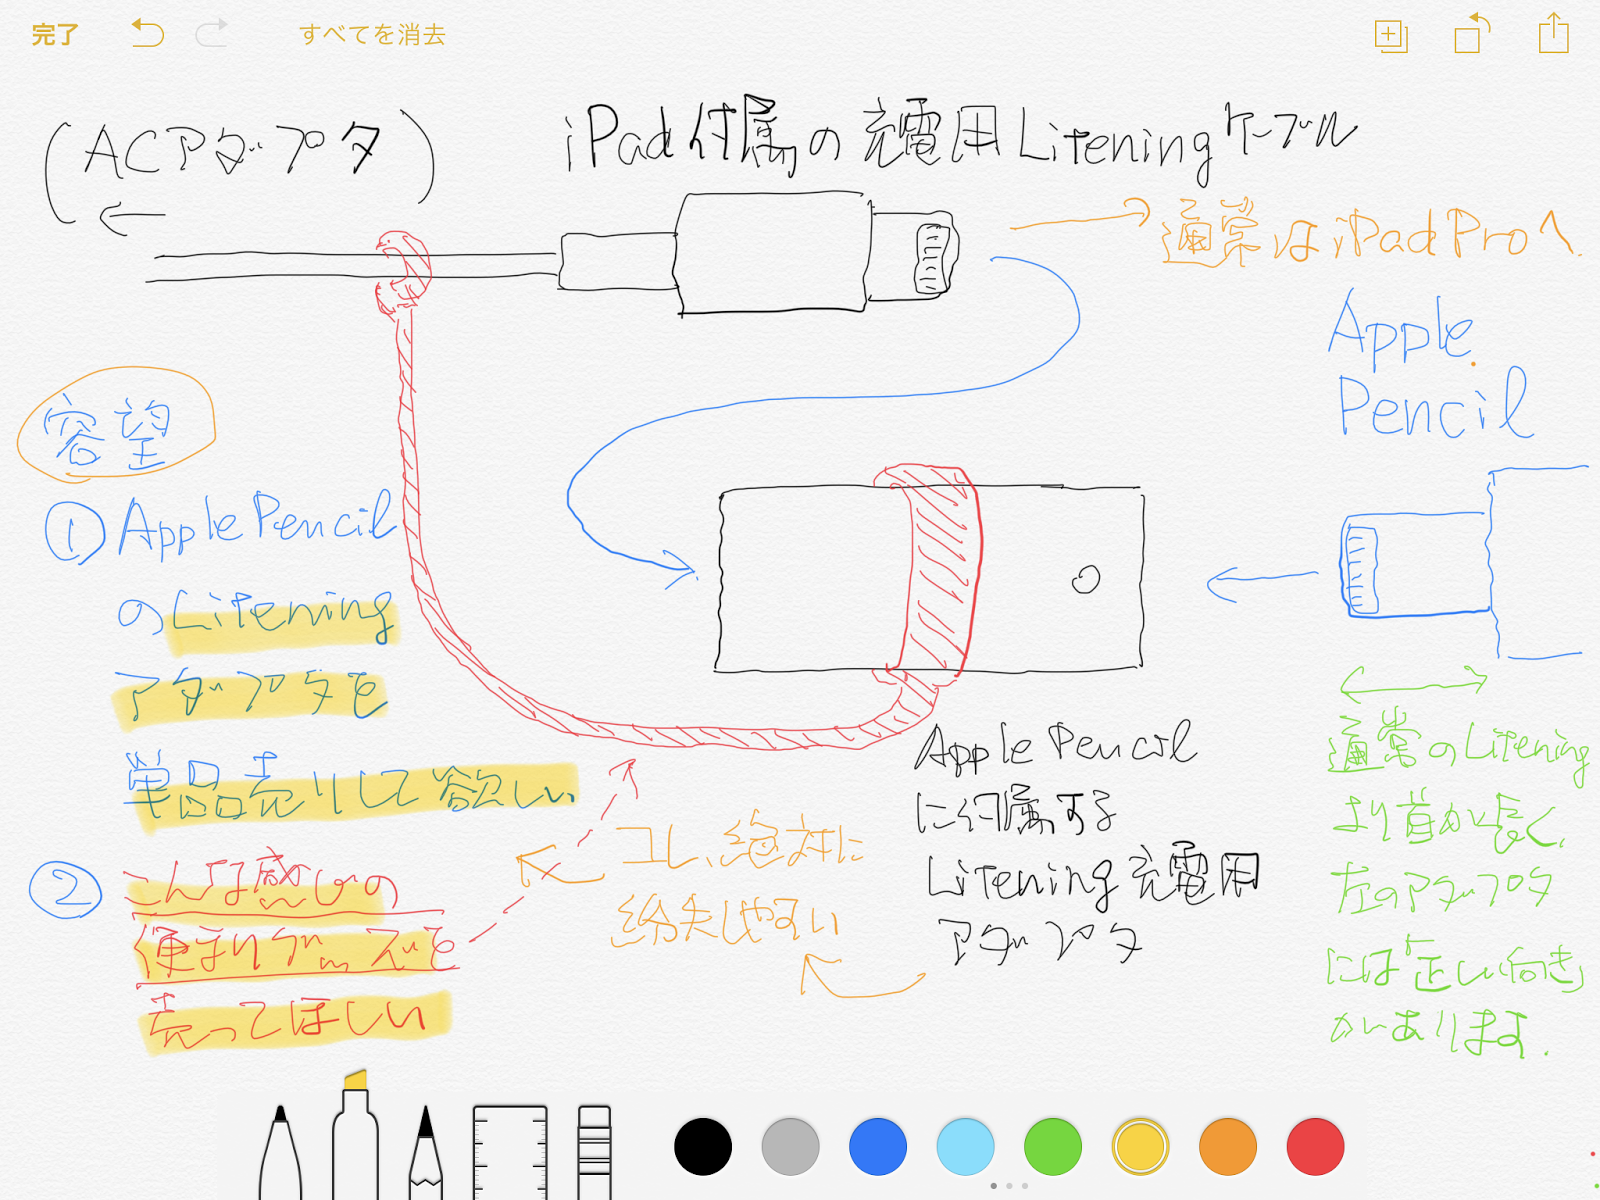 完了
すべてを消去
(ACアダプタ)
iPad付属の充電用Liteningケーブル
通常はiPadProへ.
Apple
Pencil
容望
① ApplePencil
のLitening
アダプタを
単品売りして欲しい
② こんな感じの
便利グッズを
売ってほしい
コレ、絶対に
紛失しやすい
Apple Pencil
に付属する
Litening充電用
アダプタ
通常のLitening
より首が長く、
左のアダプタ
には「正しい向き」
があります.